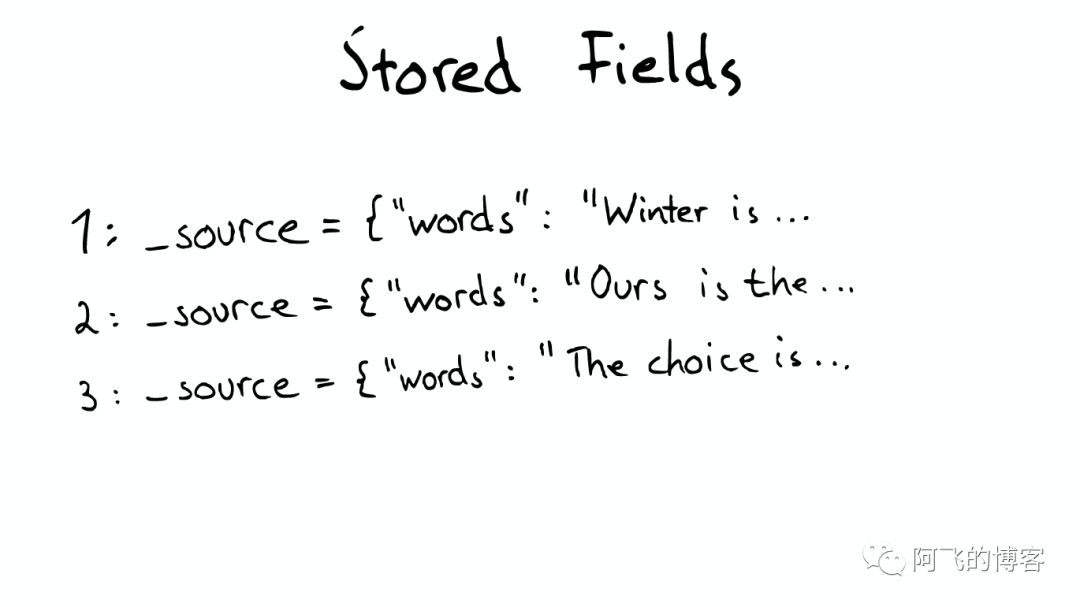 Stored Fields
1: _source = {"words": "Winter is...
2: _source = {"words": "Ours is the...
3: _source = {"words": "The choice is...
阿飞的博客